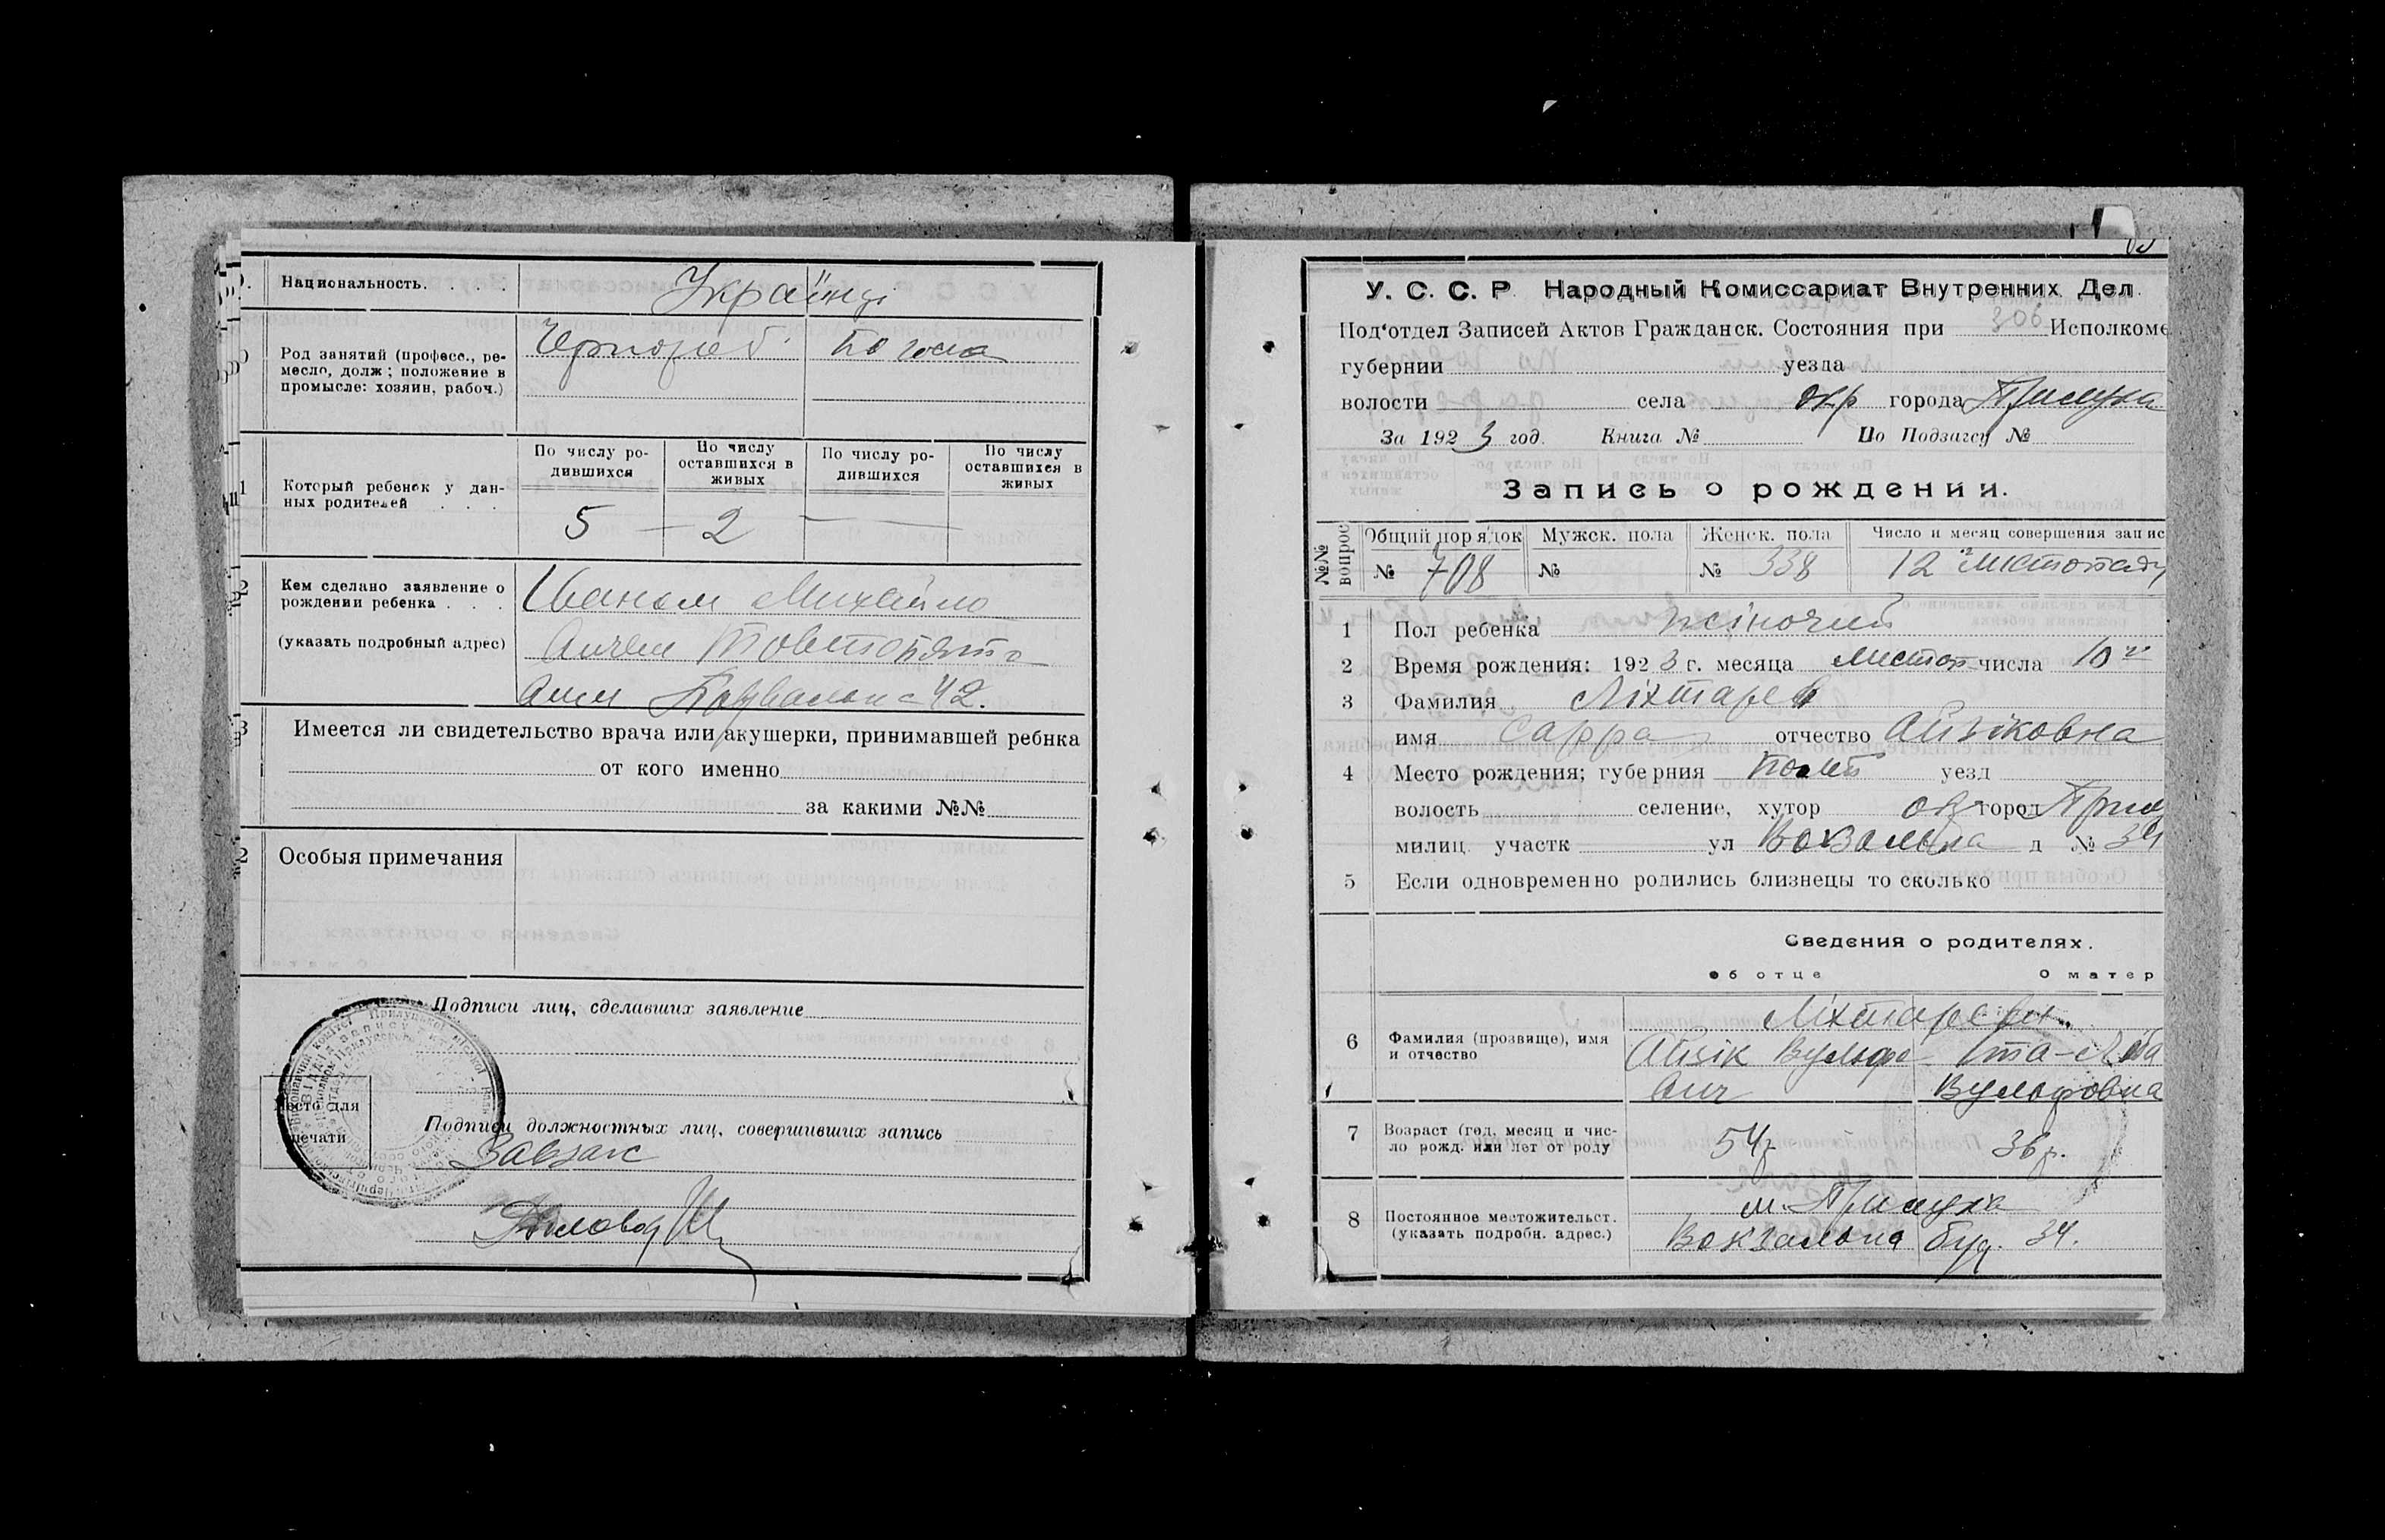 Национальность. . . . .
Українці
Род занятий (професс., ре-
месло, долж; положение в
промысле: хозяин, рабоч.)
Чернороб.
Который ребенок у дан-
ных родителей . . .
По числу ро-
дившихся
По числу
оставшихся в
живых
По числу ро-
дившихся
По числу
оставшихся в
живых
5 — 2
Кем сделано заявление о
рождении ребенка . . .
(указать подробный адрес)
Іваном Михайло
вичем
42.
Имеется ли свидетельство врача или акушерки, принимавшей ребнка
от кого именно
за какими №№
Особыя примечания
Подписи лиц, сделавших заявление
Место для
печати
Подписи должностных лиц, совершивших запись
Завзагс
У. С. С. Р. Народный Комиссариат Внутренних Дел.
Под'отдел Записей Актов Гражданск. Состояния при 306 Исполкоме
губернии уезда
волости села окр города Прилука
За 1923 год. Книга № По Подзагсу №
Запись о рождении.
№№ вопрос
Общий порядок
№ 708
Мужск. пола
№
Женск. пола
№ 338
Число и месяц совершения запис
12 листопаду
1 Пол ребенка жіночий
2 Время рождения: 1923 г. месяца листоп числа 10
3 Фамилия Ліхтарев
имя Сарра отчество Айзіковна
4 Место рождения; губерния Полт уезд
волость селение, хутор ок город Прил
милиц. участк ул Вокзальна д № 34
5 Если одновременно родились близнецы то сколько
Сведения о родителях.
об отце О матер
6 Фамилия (прозвище), имя
и отчество
Ліхтареви
Айзік Вульфо
вич
Вульфовна
7 Возраст (год, месяц и чис-
ло рожд. или лет от роду
54р. 36р.
8 Постоянное местожительст.
(указать подробн. адрес.)
м. Прилука
Вокзальна буд. 34.